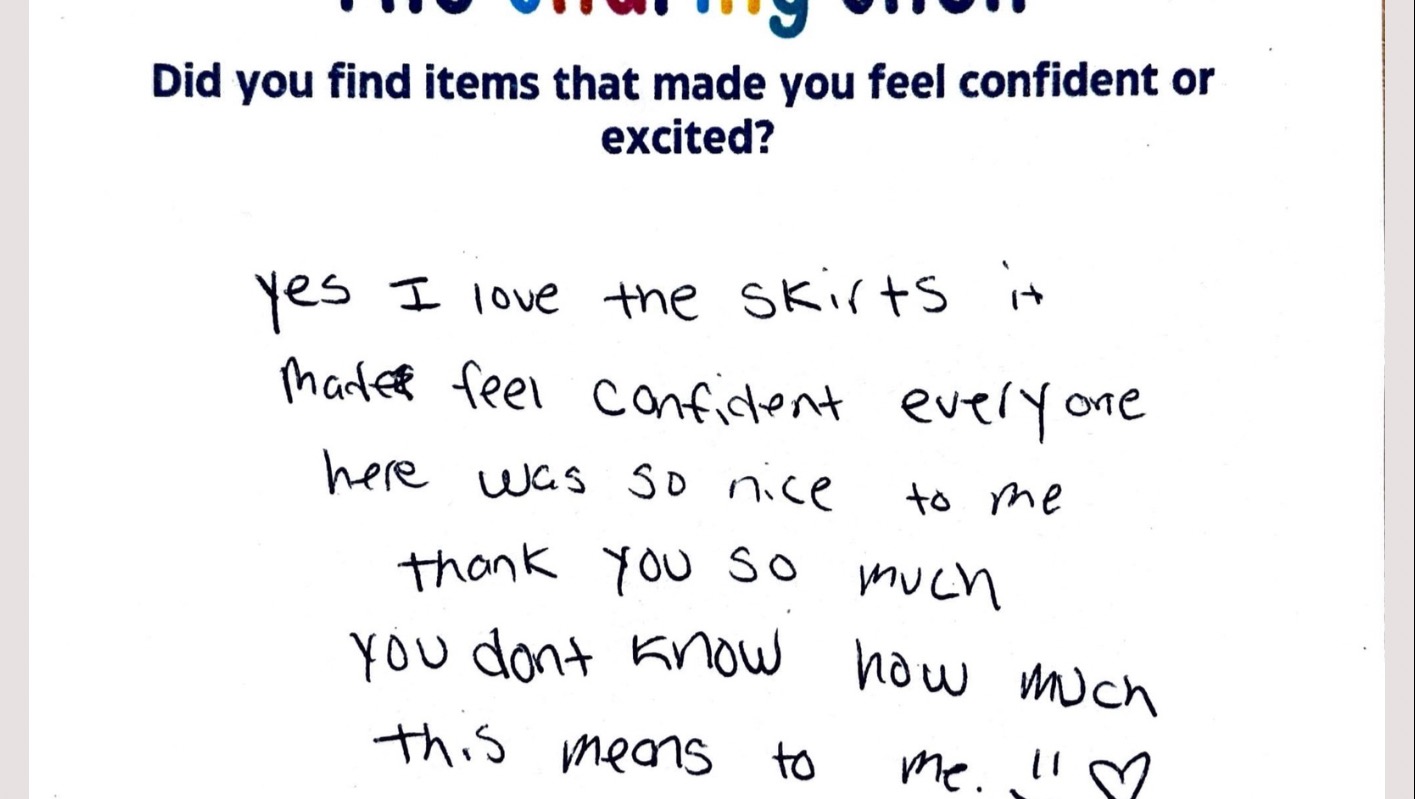 The Sharing Shop
Did you find items that made you feel confident or
excited?
yes I love the skirts it
made feel confident everyone
here was so nice to me
thank you so much
you dont know how much
this means to me. !! ♡